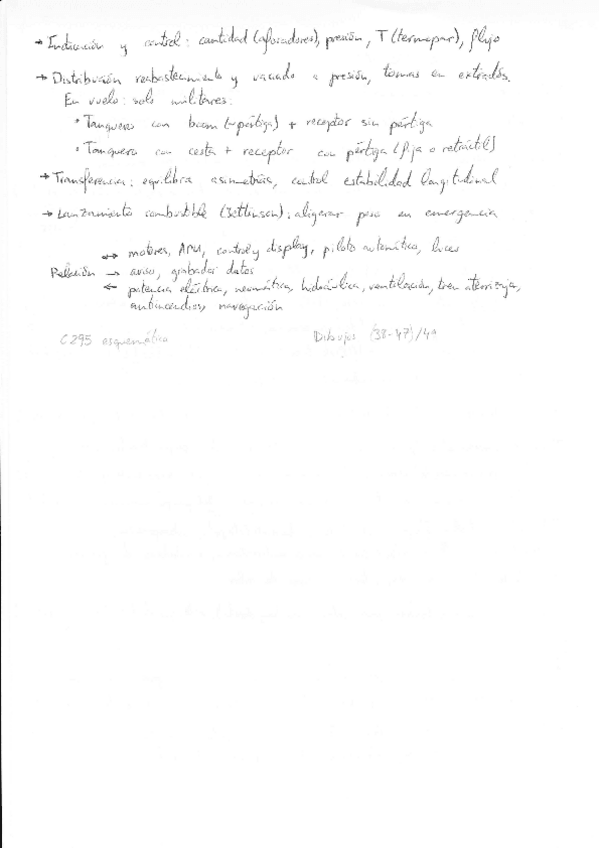 → Indicación y control: cantidad (aforadores), presión, T (termopar), flujo
→ Distribución reabastecimiento y vaciado a presión, tomas en extradós.
En vuelo: solo militares:
• Tanquero con boom (~pértiga) + receptor sin pértiga
• Tanquero con cesta + receptor con pértiga (fija o retráctil)
→ Transferencia: equilibra asimetrías, control estabilidad longitudinal
→ Lanzamiento combustible (Jettinson): aligerar peso en emergencia
↔ motores, APU, control y display, piloto automático, luces
Relación → aviso, grabador datos
← potencia eléctrica, neumática, hidráulica, ventilación, tren aterrizaje,
antiincendios, navegación
C295 esquemático Dibujos (38-47)/49